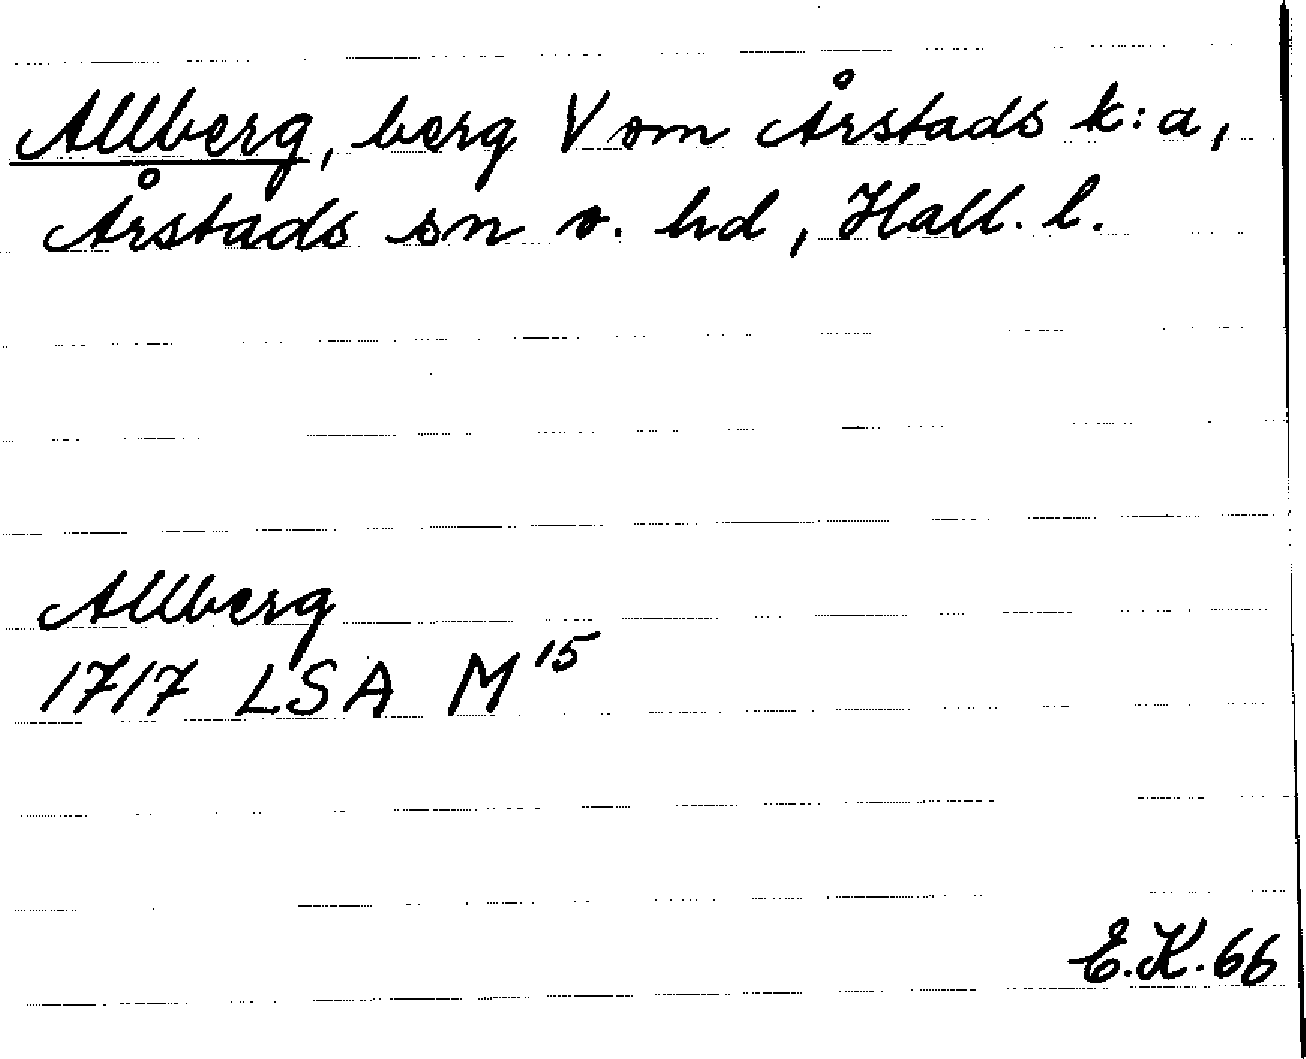 Allberg, berg V om Årstads k:a,
Årstads sn o. hd, Hall. l.
Allberg
1717 LSA M15
E.K. 66